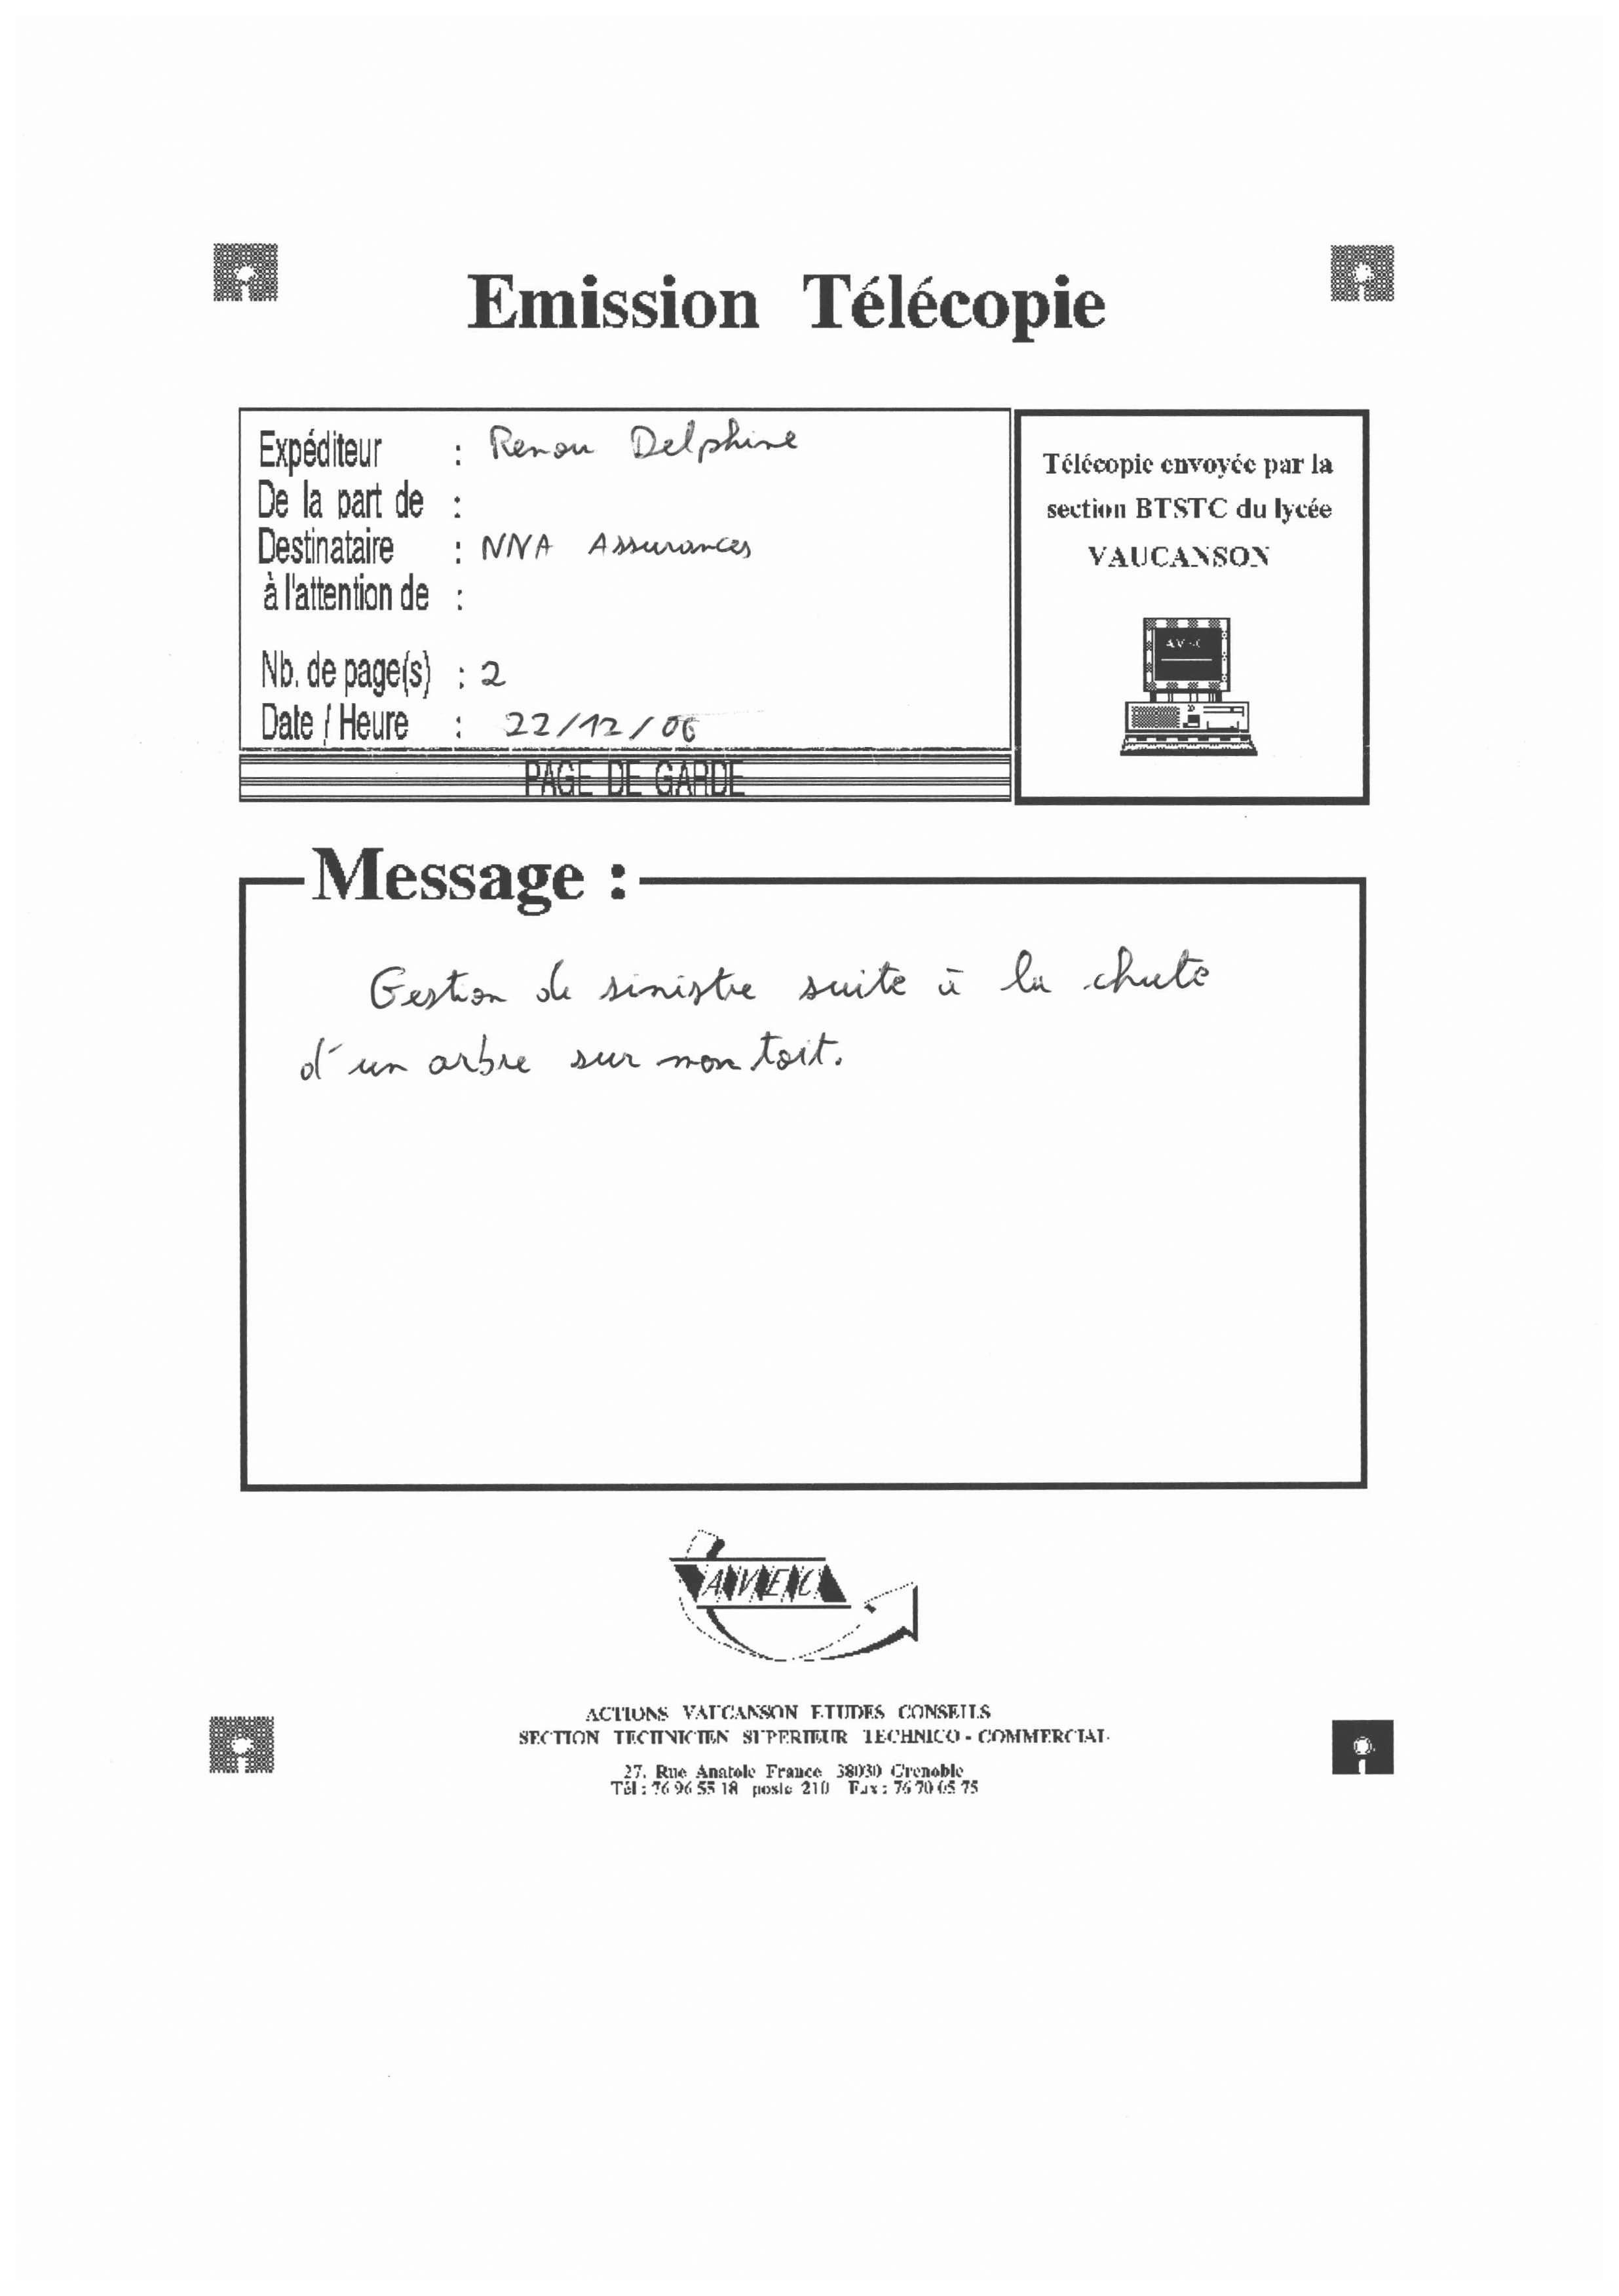 Emission Télécopie
Expéditeur : Renou Delphine
De la part de :
Destinataire : NNA Assurances
à l'attention de :
Nb. de page(s) : 2
Date / Heure : 22/12/06
PAGE DE GARDE
Télécopie envoyée par la
section BTSTC du lycée
VAUCANSON
Message :
Gestion de sinistre suite à la chute
d'un arbre sur mon toit.
AVEC
ACTIONS VAUCANSON ETUDES CONSEILS
SECTION TECHNICIEN SUPERIEUR TECHNICO - COMMERCIAL
27, Rue Anatole France 38030 Grenoble
Tél : 76 96 55 18 poste 210 Fax : 76 70 65 75